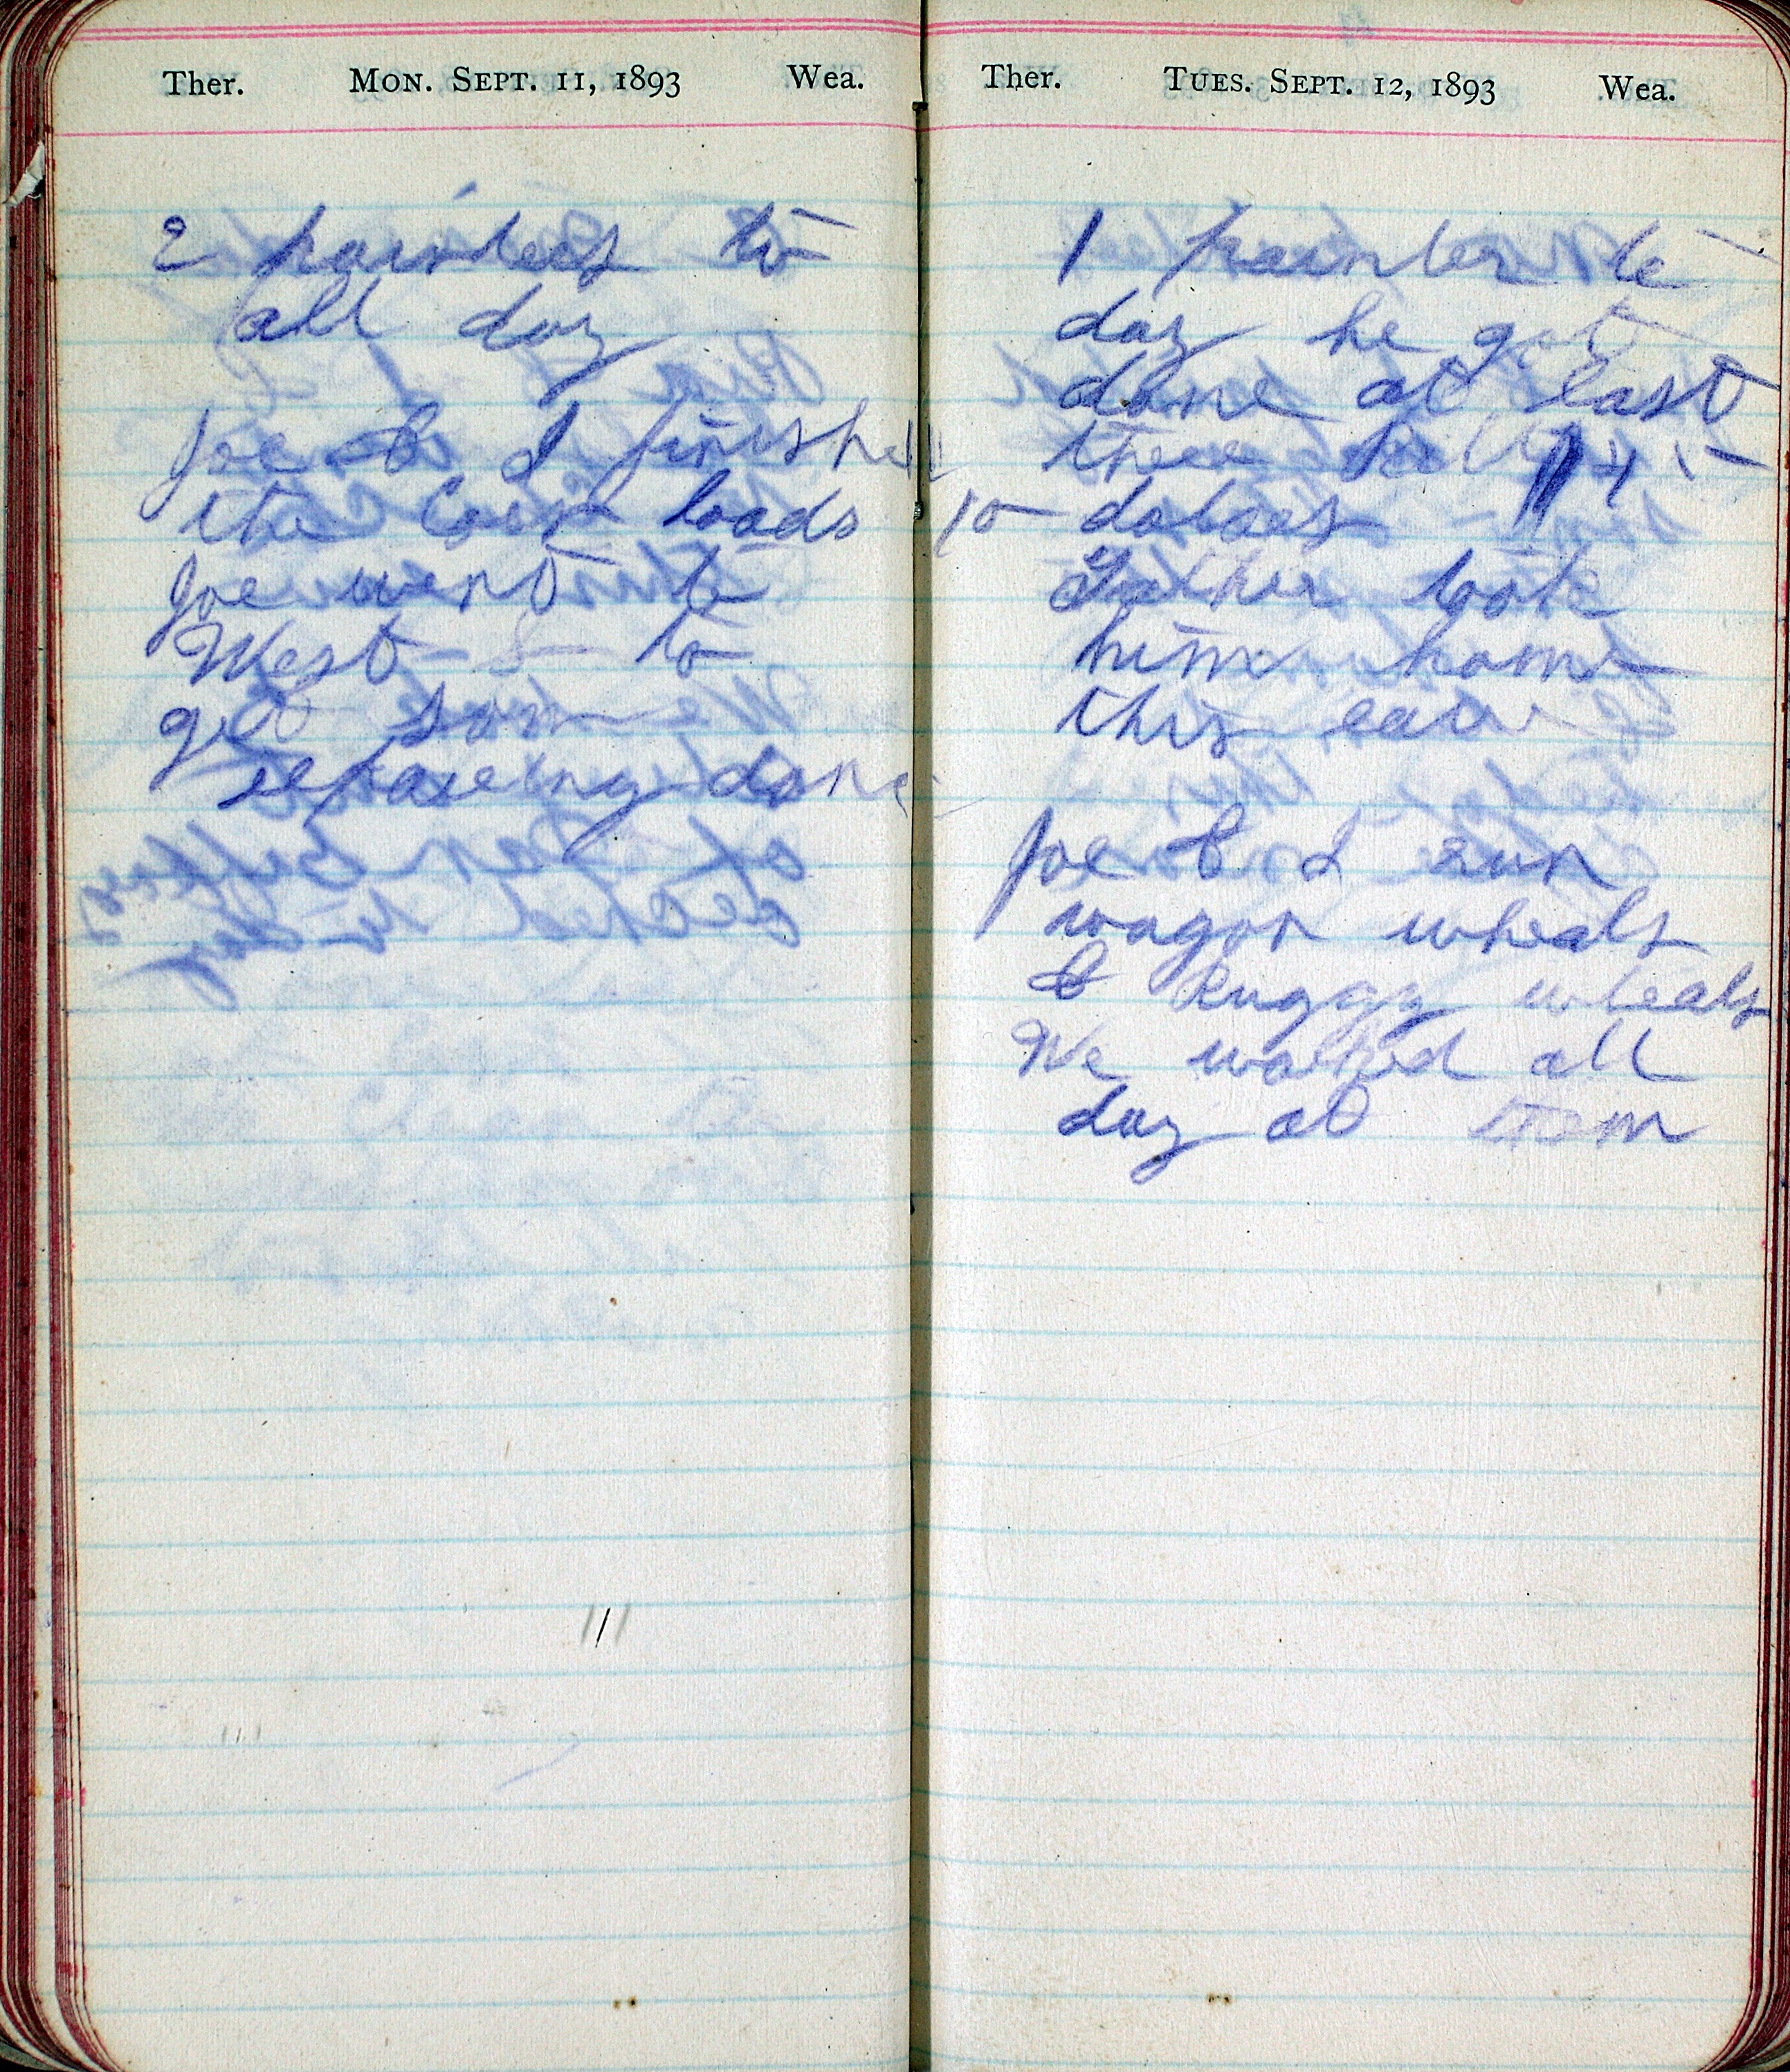 Ther. Mon. Sept. 11, 1893 Wea.
2 painters to
all day
Joe & I finished
the loads
Joe went to
West to
get some
repareing done
Ther. Tues. Sept. 12, 1893 Wea.
1 painter to
day he got
done at last
there bill
dolaes
Father took
him home
this
Joe & I run
wagon wheals
& Buggy wheals
We worked all
day at them